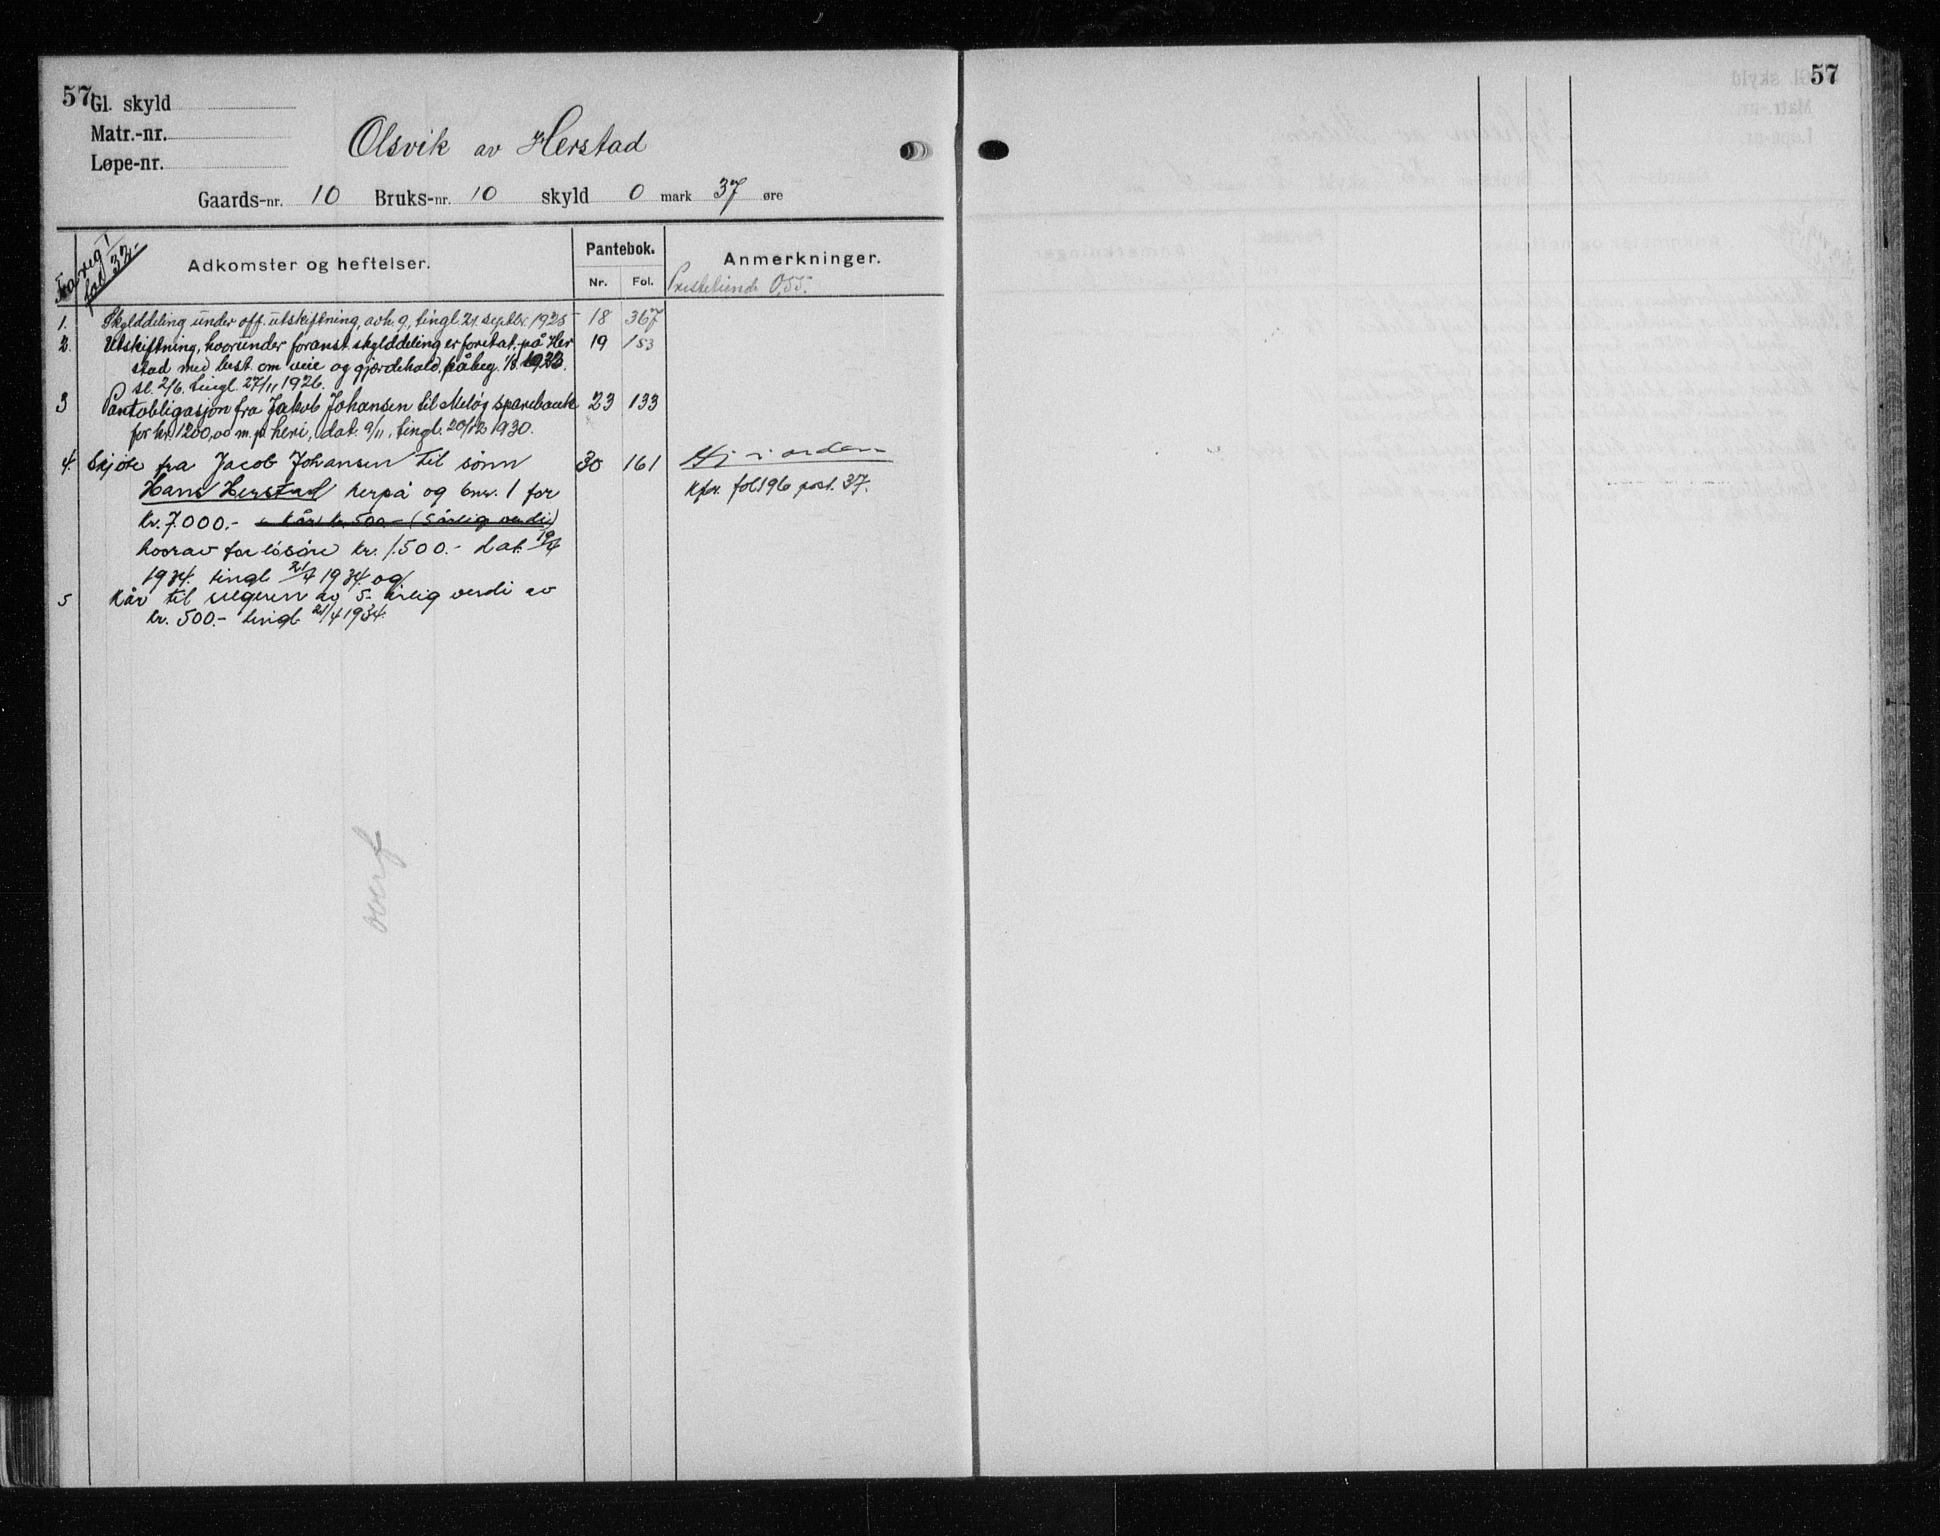 57
Gl. skyld
Matr.-nr.
Løpe-nr.
Olsvik av Herstad
Gaards-nr. 10 Bruks-nr. 10 skyld 0 mark 37 øre
Fra reg I
fol 32.-
Adkomster og heftelser.
Pantebok.
Nr. Fol.
Anmerkninger.
Prestetiende 0,55.
1. Skylddeling under off. utskiftning, avh. 9, tingl. 21. septbr. 1925 18 367
2. Utskiftning, hvorunder foranst. skylddeling er foretat på Her 19 153
stad med best. om veie og gjærdehold, påbeg. 1/8 1923.
sl. 2/6. tingl. 27/11 1926.
3 Pantobligasjon fra Jakob Johansen til Meløy sparebank 23 133
for kr. 1200,00 m. p. heri, dat. 9/11, tingl. 20/12 1930.
4. Skjöte fra Jacob Johansen til sönn 30 161
Hj i orden
Hans Herstad herpå og bnr. 1 for
kfr. fol 196 post. 37.
kr. 7.000.- kår kr. 500.- (5 årlig verdi)
hvorav for lösöre kr. 1.500.- dat. 19/4
1934. tingl 21/4 1934. og
5 kår til selgeren av 5- årlig verdi av
kr. 500.- tingl 21/4 1934.
overf
57